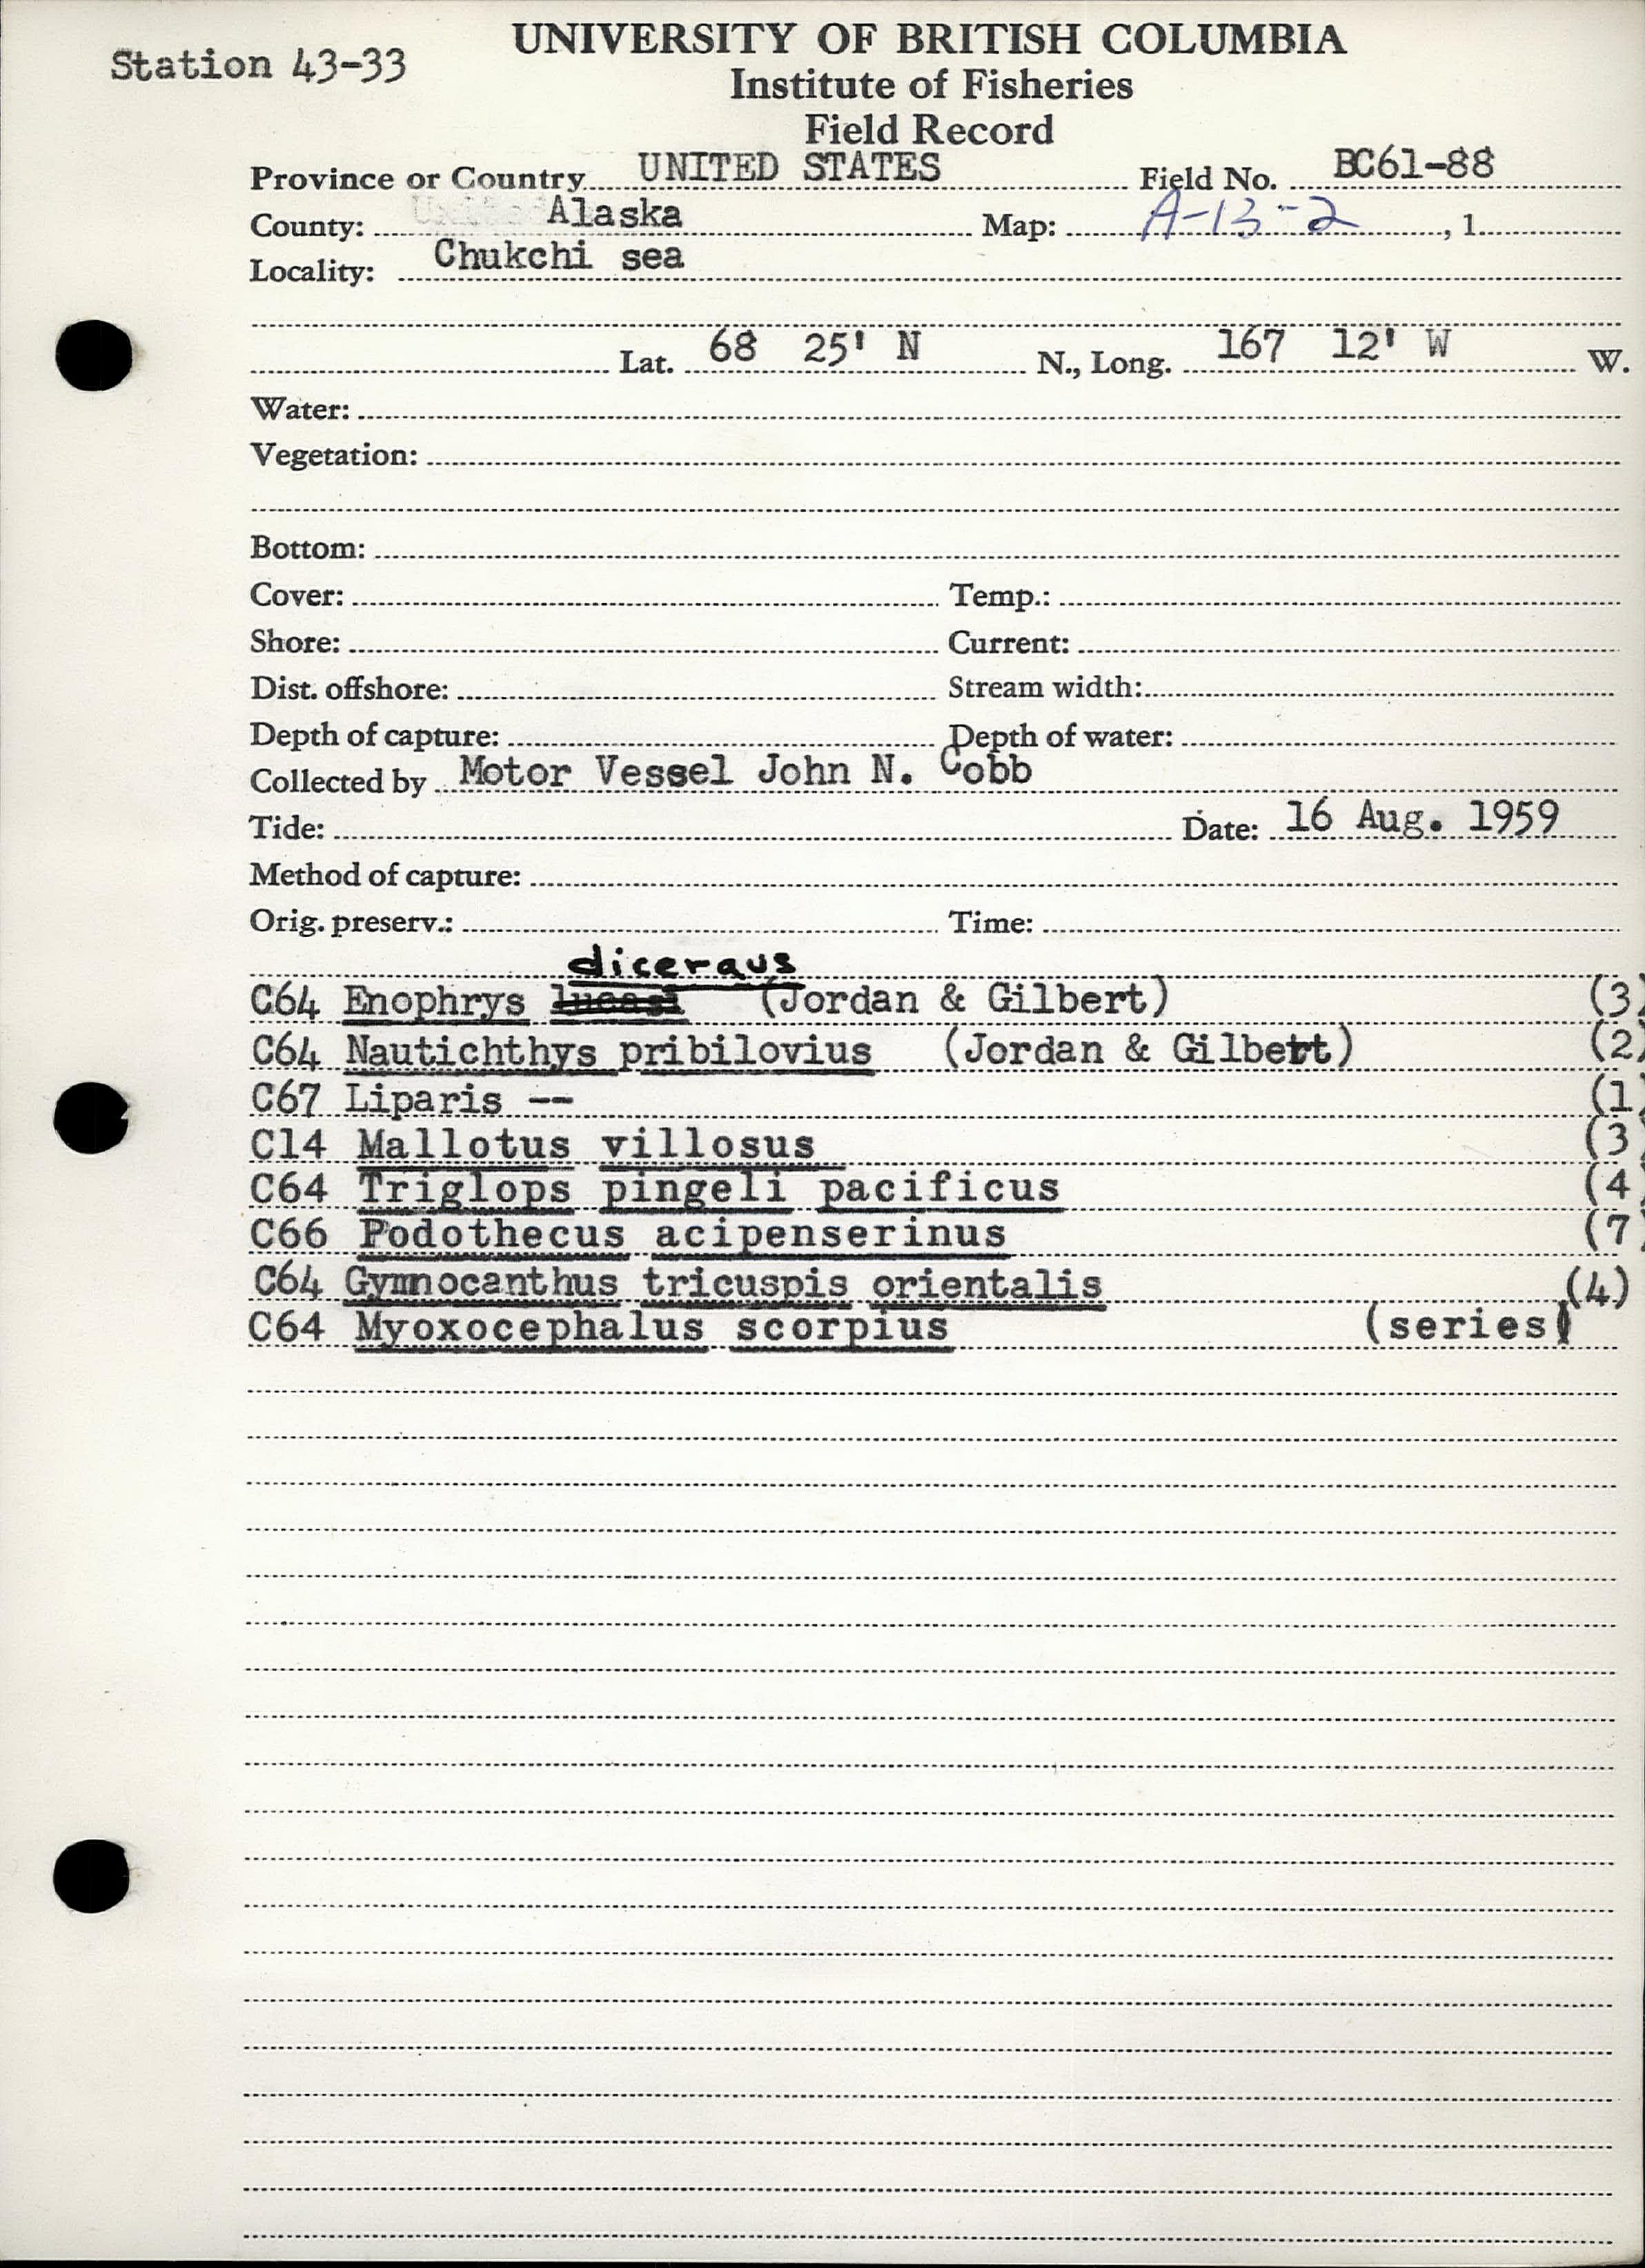 Station 43-33
UNIVERSITY OF BRITISH COLUMBIA
Institute of Fisheries
Field Record
Province or Country UNITED STATES Field No. BC61-88
County: Alaska Map: A-13-2, 1
Locality: Chukchi sea
Lat. 68 25' N N., Long. 167 12' W W.
Water:
Vegetation:
Bottom:
Cover: Temp.:
Shore: Current:
Dist. offshore: Stream width:
Depth of capture: Depth of water:
Collected by Motor Vessel John N. Cobb
Tide: Date: 16 Aug. 1959
Method of capture:
Orig. preserv.: Time:
diceraus
C64 Enophrys lucasi (Jordan & Gilbert) (3)
C64 Nautichthys pribilovius (Jordan & Gilbert) (2)
C67 Liparis -- (1)
C14 Mallotus villosus (3)
C64 Triglops pingeli pacificus (4)
C66 Podothecus acipenserinus (7)
C64 Gymnocanthus tricuspis orientalis (4)
C64 Myoxocephalus scorpius (series)